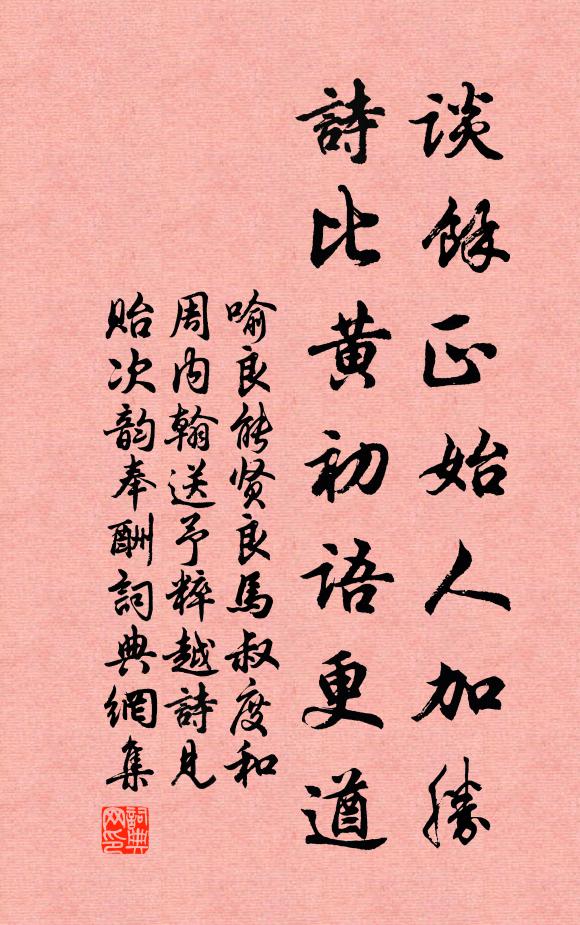 谈餘正始人加勝
詩比黄初语更遒
喻良能贤良馬叔度和
周内翰送予粹越詩见
贻次韵奉酬詞典網集
詞典
网印